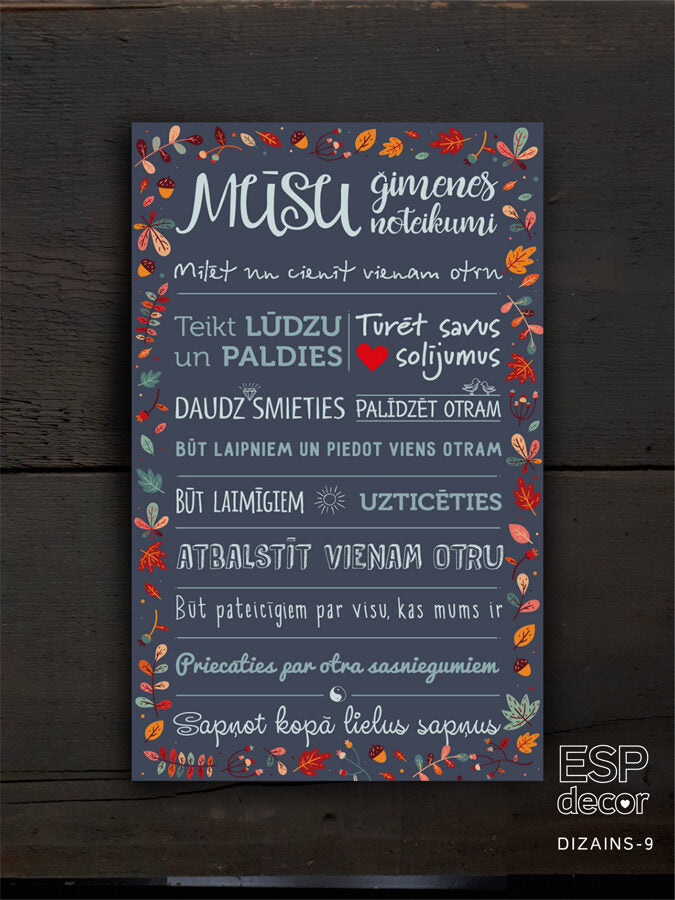 MŪSU ģimenes noteikumi
Mīlēt un cienīt vienam otru
Teikt LŪDZU
un PALDIES
Turēt savus
solījumus
DAUDZ SMIETIES
PALĪDZĒT OTRAM
BŪT LAIPNIEM UN PIEDOT VIENS OTRAM
BŪT LAIMĪGIEM
UZTICĒTIES
ATBALSTĪT VIENAM OTRU
Būt pateicīgiem par visu, kas mums ir
Priecāties par otra sasniegumiem
Sapņot kopā lielus sapņus
ESP
decor
DIZAINS-9